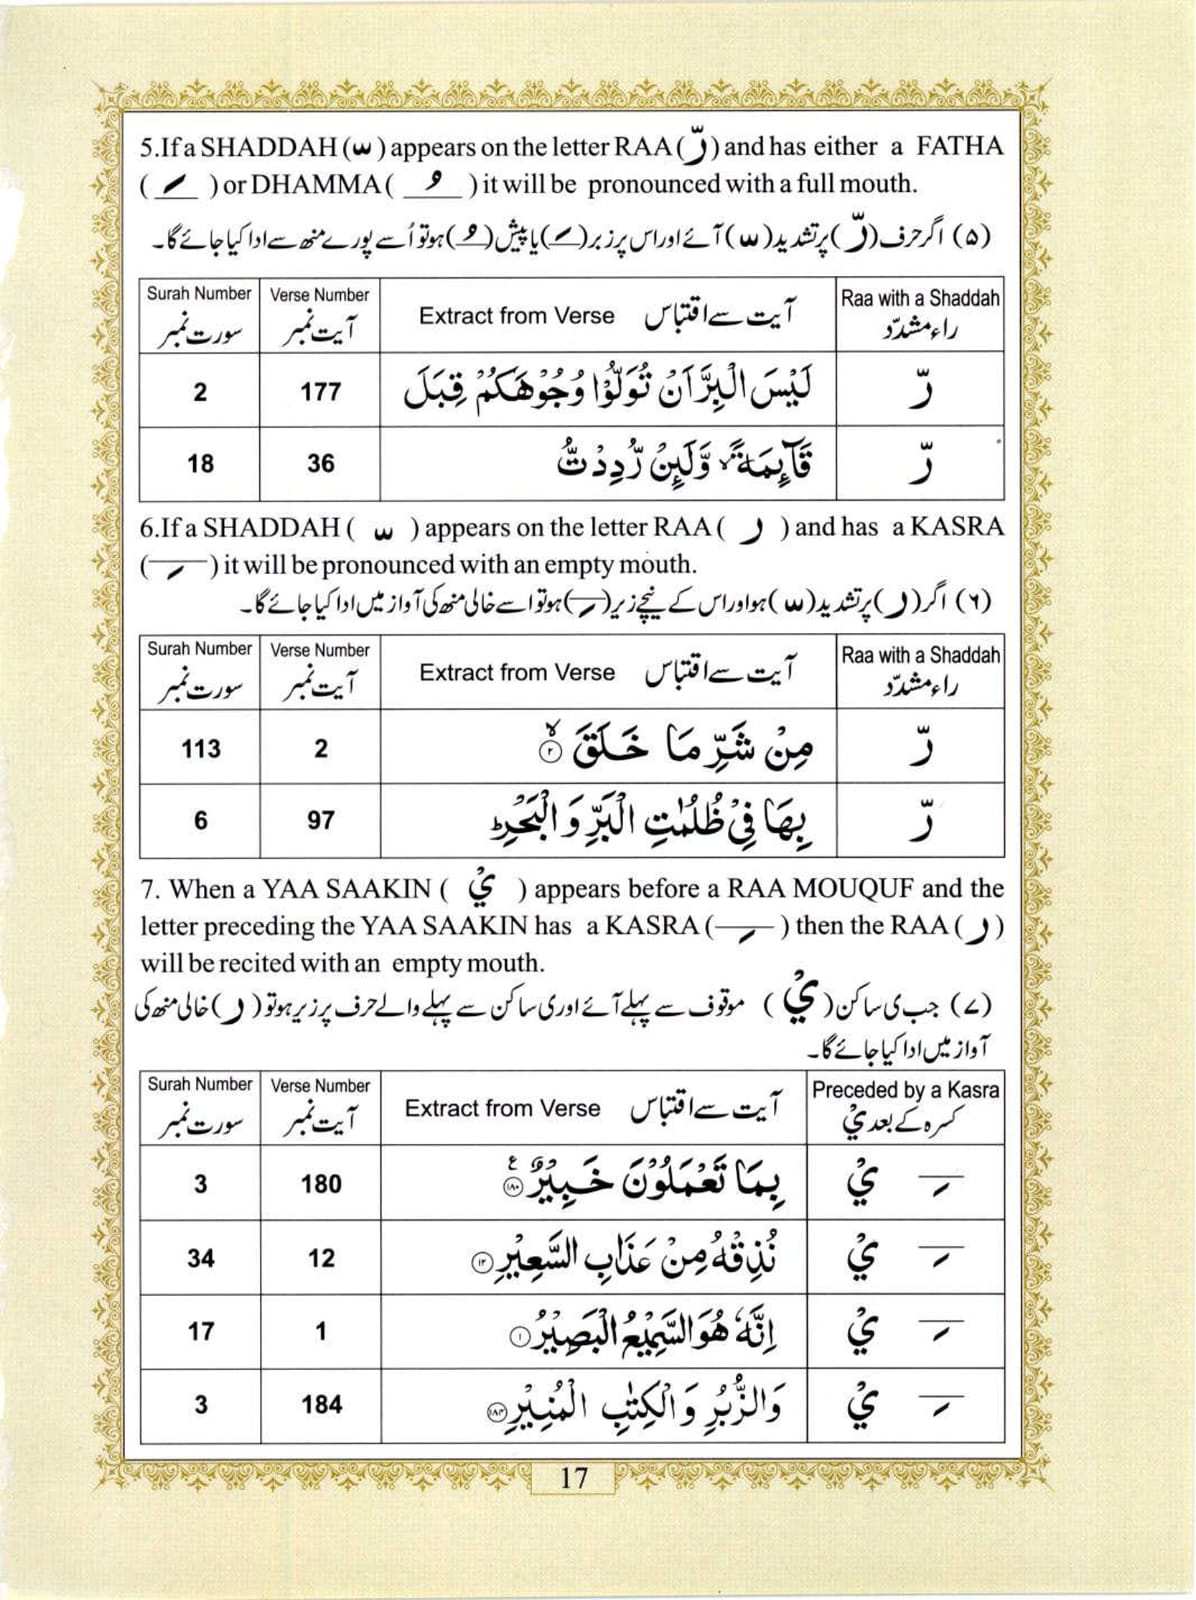 5.If a SHADDAH ( ّ ) appears on the letter RAA ( رّ ) and has either a FATHA
( َ ) or DHAMMA ( ُ ) it will be pronounced with a full mouth.
(۵) اگر حرف (رّ) پر تشدید ( ّ ) آئے اور اس پر زبر ( َ ) یا پیش ( ُ ) ہو تو اُسے پورے منھ سے ادا کیا جائے گا۔
Surah Number Verse Number Extract from Verse آیت سے اقتباس Raa with a Shaddah
سورت نمبر آیت نمبر راء مشدّد
2 177 لَيْسَ الْبِرَّ اَنْ تُوَلُّوْا وُجُوْهَكُمْ قِبَلَ رّ
18 36 قَآئِمَةً ۙ وَّلَئِنْ رُّدِدْتُّ رّ
6.If a SHADDAH ( ّ ) appears on the letter RAA ( ر ) and has a KASRA
( ِ ) it will be pronounced with an empty mouth.
(۶) اگر (ر) پر تشدید ( ّ ) ہو اور اس کے نیچے زیر ( ِ ) ہو تو اسے خالی منھ کی آواز میں ادا کیا جائے گا۔
Surah Number Verse Number Extract from Verse آیت سے اقتباس Raa with a Shaddah
سورت نمبر آیت نمبر راء مشدّد
113 2 مِنْ شَرِّ مَا خَلَقَ ۙ ۲ رّ
6 97 بِهَا فِيْ ظُلُمٰتِ الْبَرِّ وَ الْبَحْرِ ؕ رّ
7. When a YAA SAAKIN ( يْ ) appears before a RAA MOUQUF and the
letter preceding the YAA SAAKIN has a KASRA ( ِ ) then the RAA ( ر )
will be recited with an empty mouth.
(۷) جب ی ساکن (يْ) موقوف سے پہلے آئے اور ی ساکن سے پہلے والے حرف پر زیر ہو تو (ر) خالی منھ کی
آواز میں ادا کیا جائے گا۔
Surah Number Verse Number Extract from Verse آیت سے اقتباس Preceded by a Kasra
سورت نمبر آیت نمبر کسرہ کے بعد يْ
3 180 بِمَا تَعْمَلُوْنَ خَبِيْرٌ ۱۸۰ ع ِ يْ
34 12 نُذِقْهُ مِنْ عَذَابِ السَّعِيْرِ ۱۲ ِ يْ
17 1 اِنَّهٗ هُوَ السَّمِيْعُ الْبَصِيْرُ ۱ ِ يْ
3 184 وَالزُّبُرِ وَالْكِتٰبِ الْمُنِيْرِ ۱۸۴ ِ يْ
17